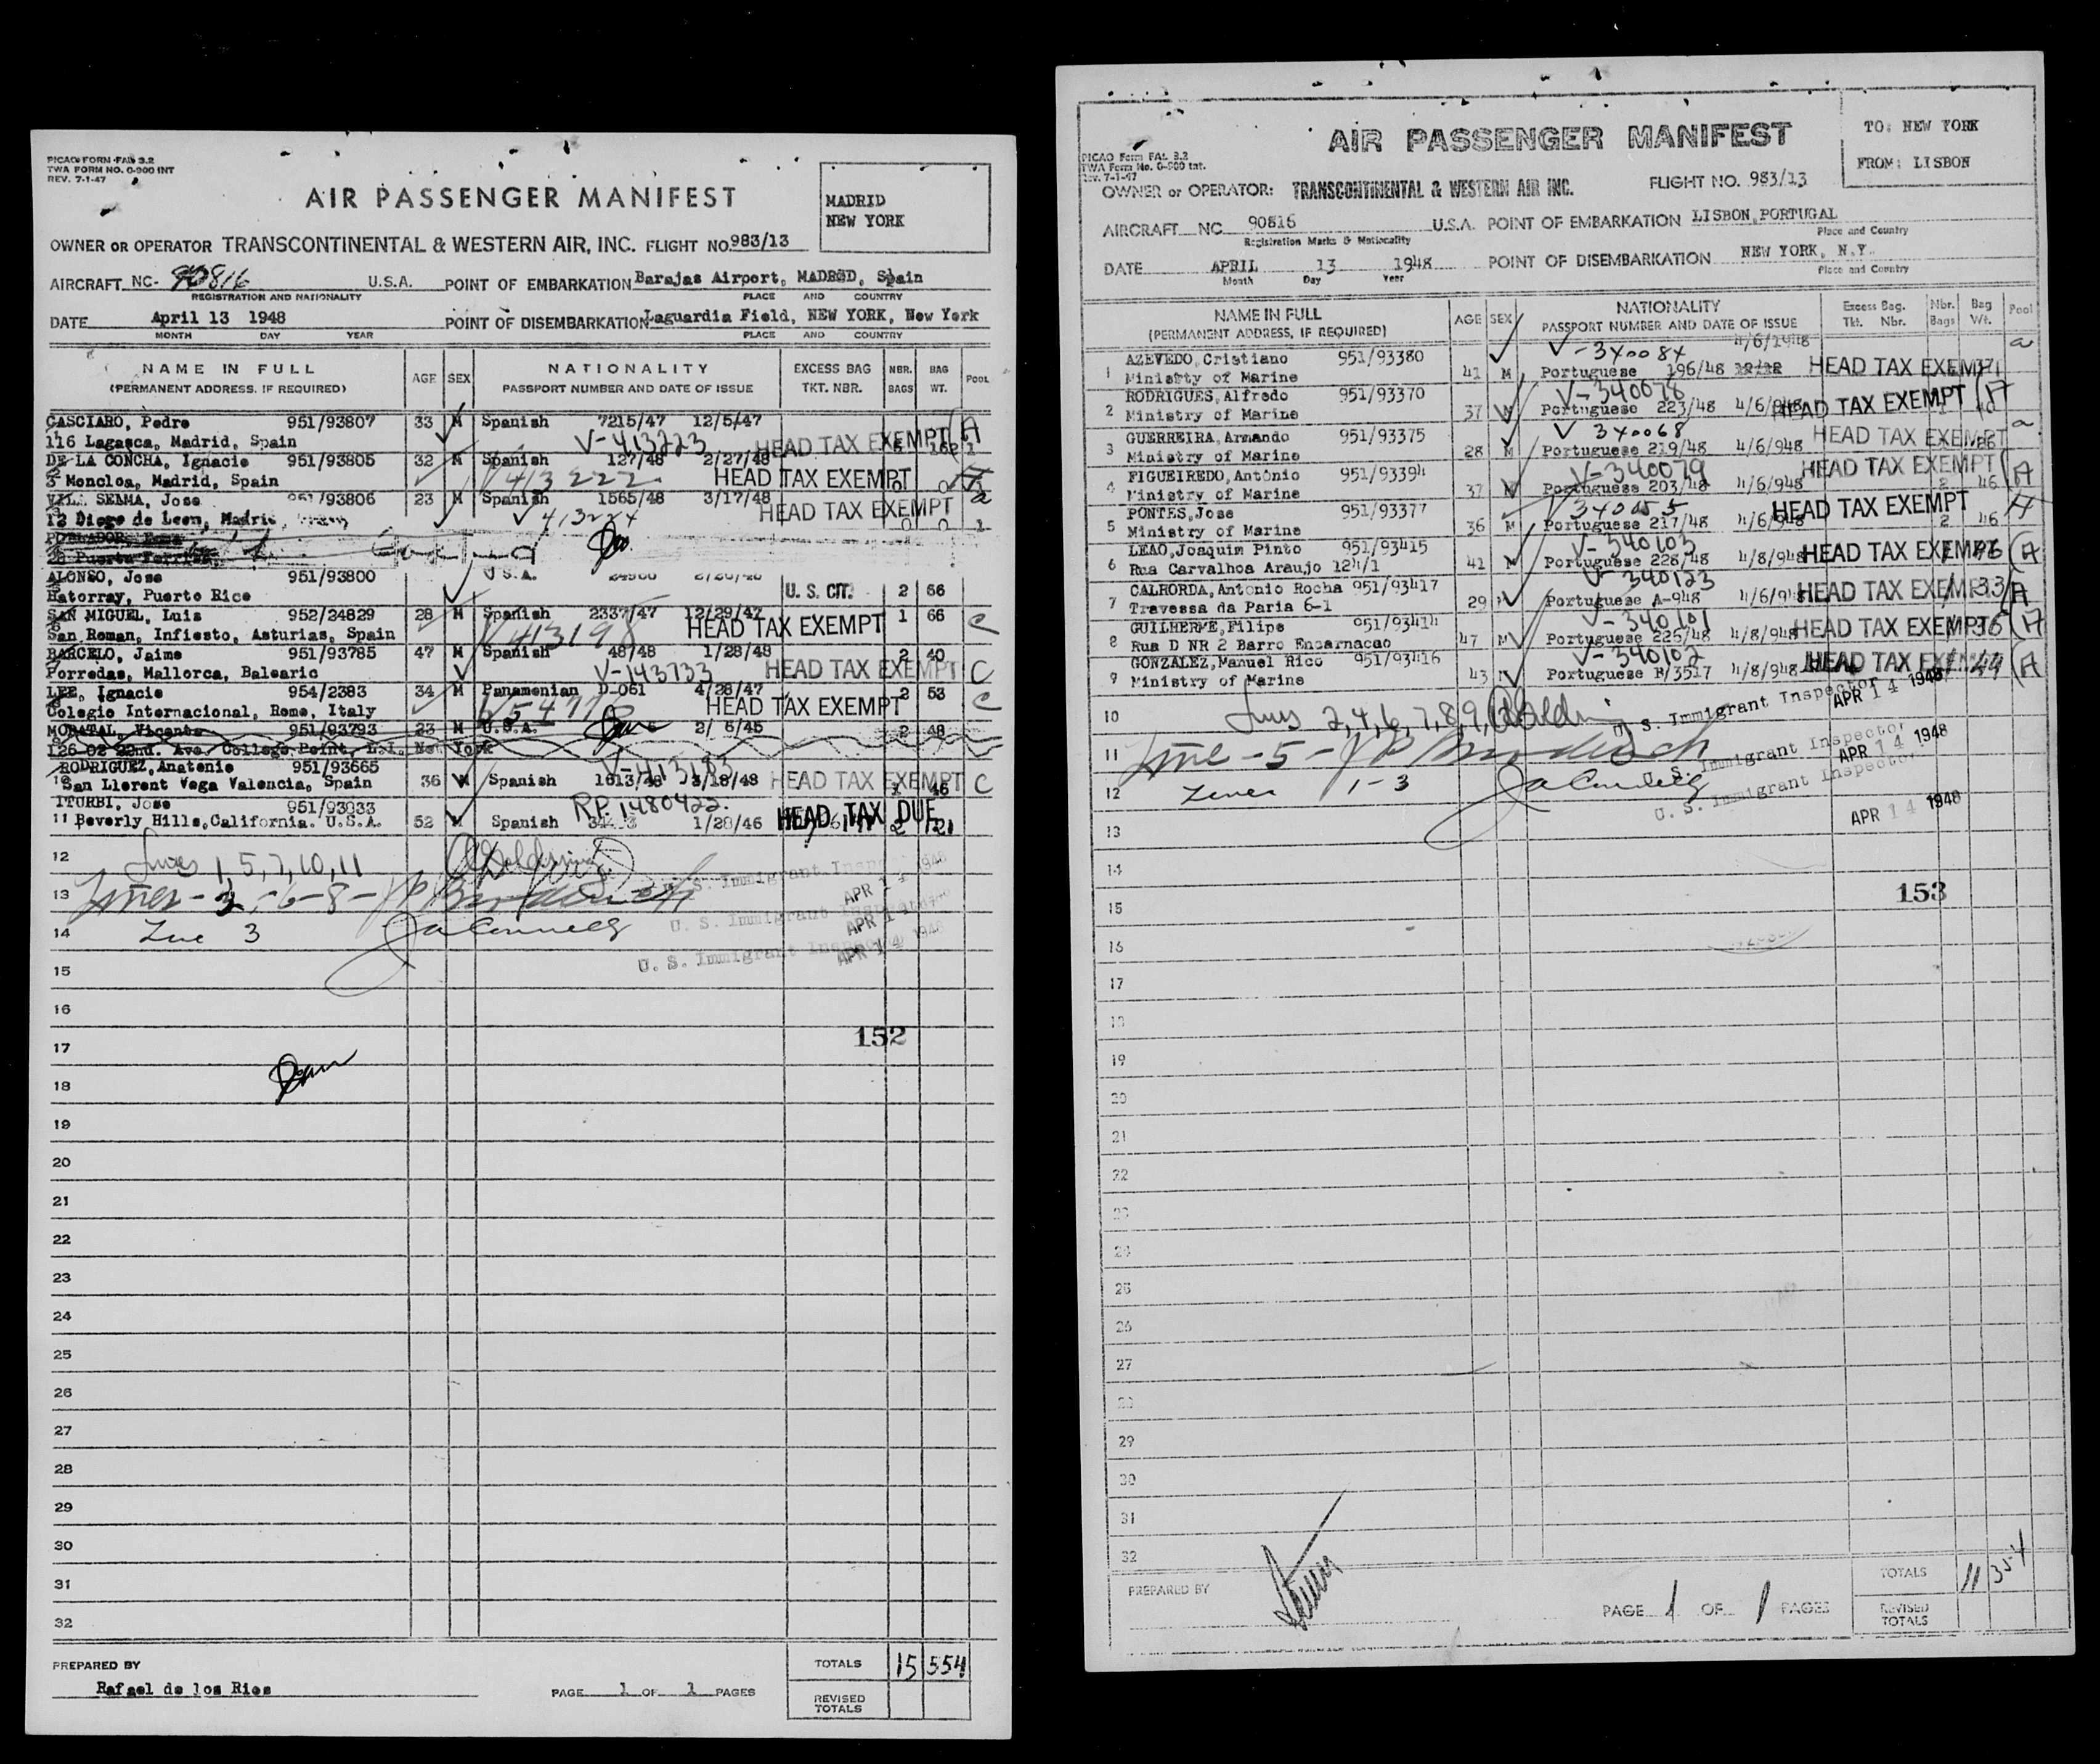 PICAO FORM FAL 3.2
TWA FORM NO. O-900 INT
REV. 7-1-47
AIR PASSENGER MANIFEST
MADRID
NEW YORK
OWNER OR OPERATOR TRANSCONTINENTAL & WESTERN AIR, INC. FLIGHT NO 983/13
AIRCRAFT NC- 90816 U.S.A. POINT OF EMBARKATION Barajas Airport, MADRID, Spain
REGISTRATION AND NATIONALITY PLACE AND COUNTRY
DATE April 13 1948 POINT OF DISEMBARKATION Laguardia Field, NEW YORK, New York
MONTH DAY YEAR PLACE AND COUNTRY
NAME IN FULL AGE SEX NATIONALITY EXCESS BAG NBR. BAG POOL
(PERMANENT ADDRESS, IF REQUIRED) PASSPORT NUMBER AND DATE OF ISSUE TKT. NBR. BAGS WT.
CASCIARO, Pedro 951/93807 33 M Spanish 7215/47 12/5/47
116 Lagasca, Madrid, Spain V-413223 HEAD TAX EXEMPT A
DE LA CONCHA, Ignacio 951/93805 32 M Spanish 127/48 2/27/48
3 Moncloa, Madrid, Spain V 413222 HEAD TAX EXEMPT 0
VILA SELMA, Jose 951/93806 23 M Spanish 1565/48 3/17/48 a
12 Diego de Leon, Madrid, V 413224 HEAD TAX EXEMPT 0 0 1
ALONSO, Jose 951/93800 U.S.A.
Hatorray, Puerto Rico U. S. CIT. 2 66
SAN MIGUEL, Luis 952/24829 28 M Spanish 2337/47 12/29/47 1 66
San Roman, Infiesto, Asturias, Spain V 413198 HEAD TAX EXEMPT C
BARCELO, Jaime 951/93785 47 M Spanish 48/48 1/28/48 2 40
Porredas, Mallorca, Balearic V-143733 HEAD TAX EXEMPT C
LEE, Ignacio 954/2383 34 M Panamenian D-061 4/28/47 2 53
Colegio Internacional, Rome, Italy HEAD TAX EXEMPT C
MORATAL, Vicente 951/93793 23 M U.S.A. 2/ 6/45 2 48
126-02 22nd. Ave. College Point, L.I. New York
RODRIGUEZ, Anatonio 951/93665 V-413183
San Llorent Vega Valencia, Spain 36 M Spanish 1613/48 3/18/48 HEAD TAX EXEMPT 46 C
ITURBI, Jose 951/93933 RP. 1480422.
11 Beverly Hills, California. U.S.A. 52 M Spanish 1/28/46 HEAD TAX DUE 2 121
12 Lines 1, 5, 7, 10, 11
13 U. S. Immigrant Inspector APR 14 1948
14 Line 3 U. S. Immigrant Inspector APR 14 1948
U. S. Immigrant Inspector APR 14 1948
15
16
152
17
18
19
20
21
22
23
24
25
26
27
28
29
30
31
32
PREPARED BY TOTALS 15 554
Rafael de los Rios PAGE 1 OF 1 PAGES
REVISED
TOTALS
AIR PASSENGER MANIFEST
TO: NEW YORK
FROM: LISBON
PICAO Form FAL 3.2
TWA Form No. O-900 Int.
Rev. 7-1-47
OWNER or OPERATOR: TRANSCONTINENTAL & WESTERN AIR INC. FLIGHT NO. 983/13
AIRCRAFT NC 90816 U.S.A. POINT OF EMBARKATION LISBON, PORTUGAL
Registration Marks & Nationality Place and Country
DATE APRIL 13 1948 POINT OF DISEMBARKATION NEW YORK, N.Y.
Month Day Year Place and Country
NAME IN FULL AGE SEX NATIONALITY Excess Bag. Nbr. Bag Pool
(PERMANENT ADDRESS, IF REQUIRED) PASSPORT NUMBER AND DATE OF ISSUE Tkt. Nbr. Bags Wt.
AZEVEDO, Cristiano 951/93380 V-340084 4/6/1948 a
1 Ministry of Marine 41 M Portuguese 196/48 HEAD TAX EXEMPT
RODRIGUES, Alfredo 951/93370 V-340078
2 Ministry of Marine 37 M Portuguese 223/48 4/6/948 HEAD TAX EXEMPT A
GUERREIRA, Armando 951/93375 V 340068 a
3 Ministry of Marine 28 M Portuguese 219/48 4/6/948 HEAD TAX EXEMPT
FIGUEIREDO, António 951/93394 V-340079
4 Ministry of Marine 37 M Portuguese 203/48 4/6/948 HEAD TAX EXEMPT 2 46 A
PONTES, Jose 951/93377
5 Ministry of Marine 36 M Portuguese 217/48 4/6/948 HEAD TAX EXEMPT 2 46 A
LEAO, Joaquim Pinto 951/93415 V-340103
6 Rua Carvalhoa Araujo 124/1 41 M Portuguese 228/48 4/8/948 HEAD TAX EXEMPT A
CALHORDA, Antonio Rocha 951/93417 V-340123
7 Travessa da Paria 6-1 29 M Portuguese A-948 4/6/948 HEAD TAX EXEMPT 33 A
GUILHERME, Filipe 951/93414 V-340101
8 Rua D NR 2 Barro Encarnacao 47 M Portuguese 226/48 4/8/948 HEAD TAX EXEMPT 36 A
GONZALEZ, Manuel Rico 951/93416 V-340102
9 Ministry of Marine 43 M Portuguese B/3517 4/8/948 HEAD TAX 44 A
10 Lines 2,4,6,7,8,9, U. S. Immigrant Inspector APR 14 1948
11 Line -5- U. S. Immigrant Inspector APR 14 1948
12 Lines 1-3 U. S. Immigrant Inspector
13 APR 14 1948
14
15 153
16
17
18
19
20
21
22
23
24
25
26
27
28
29
30
31
32
PREPARED BY TOTALS 11 354
PAGE 1 OF 1 PAGES REVISED
TOTALS